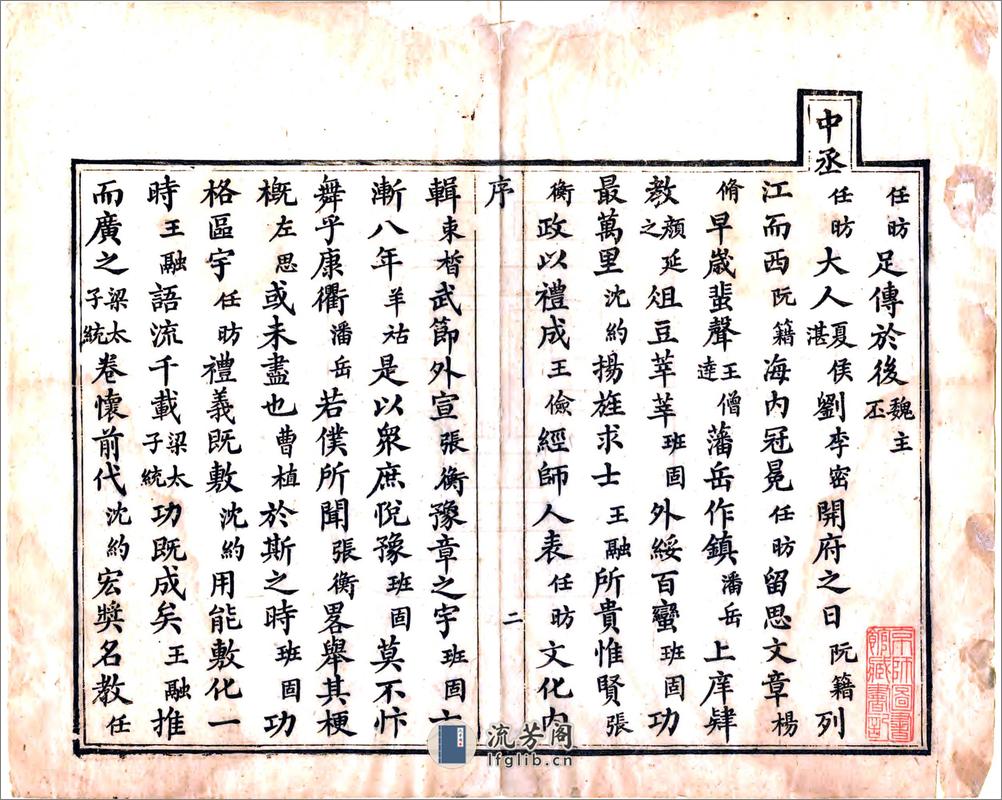 任昉足傳於後魏主丕
中丞任昉大人夏侯湛劉李密開府之日阮籍列
江而西阮籍海内冠冕任昉留思文章楊
脩早歲蜚聲王僧達藩岳作鎮潘岳上庠肆
教顏延之俎豆莘莘班固外綏百蠻班固功
最萬里沈約揚旌求士王融所貴惟賢張
衡政以禮成王儉經師人表任昉文化内
序 二
輯束晳武節外宣張衡豫章之宇班固
漸八年羊祜是以衆庶悅豫班固莫不忭
舞乎康衢潘岳若僕所聞張衡畧舉其梗
概左思或未盡也曹植於斯之時班固功
格區宇任昉禮義既敷沈約用能敷化一
時王融語流千載梁太子統功既成矣王融推
而廣之梁太子統卷懷前代沈約宏奬名教任
京師圖書館藏書印
流芳阁
lfglib.cn